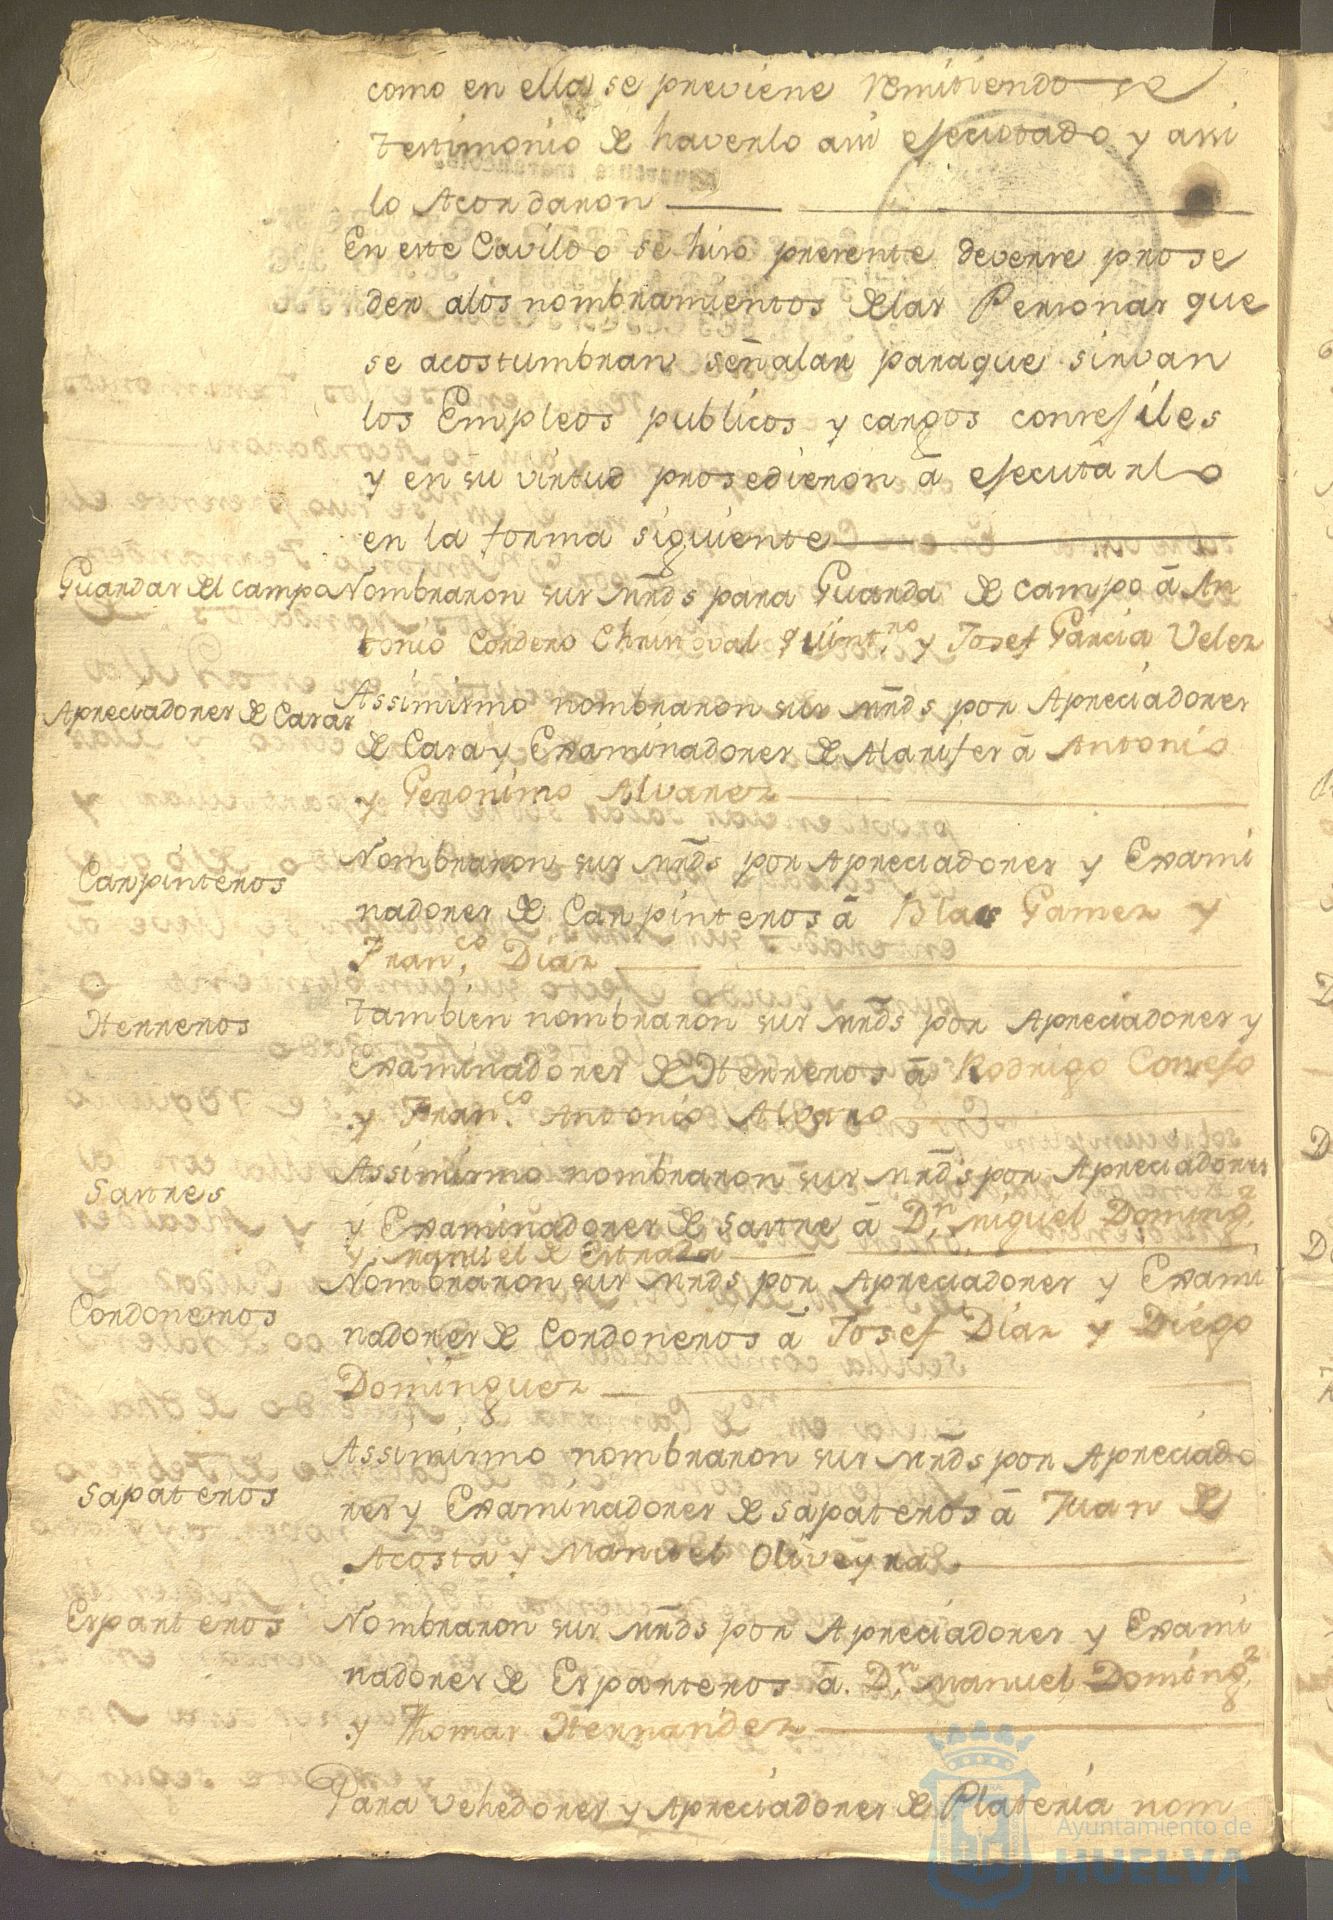 como en ella se previene remitiendo se
testimonio de haverlo assi ejecutado y assi
lo Acordaron
En este Cavildo se hiso presente deverse prose
der alos nombramientos delas Personas que
se acostumbran señalar paraque sirvan
los Empleos publicos y cargos consejiles
y en su virtud prosedieron â ejecutarlo
en la forma siguiente
Guardas del campo Nombraron sus mrds para Guarda de campo â An
tonio Cordero Christoval Quintro y Josef Garcia Velez
Apreciadores de Casas Assimismo nombraron sus mrds por Apreciadores
de Casa y Examinadores de Alarifes â Antonio
y Geronimo Alvarez
Carpinteros Nombraron sus mrds por Apreciadores y Exami
nadores de Carpinteros â Blas Gamez y
Franco Diaz
Herreros Tambien nombraron sus mrds por Apreciadores y
Examinadores de Herreros â Rodrigo Consejo
y Franco Antonio Alvaro
Sastres Assimismo nombraron sus mrds por Apreciadores
y Examinadores de Sastre â Dn Miguel Domingz
y Manuel de Estrada
Cordoneros Nombraron sus mrds por Apreciadores y Exami
nadores de Cordoneros â Josef Diaz y Diego
Dominguez
Sapateros Assimismo nombraron sus mrds por Apreciado
res y Examinadores de Sapateros â Juan de
Acosta y Manuel Oliveyra
Esparteros Nombraron sus mrds por Apreciadores y Exami
nadores de Esparteros â Dn Manuel Domingz
y Thomas Hernandez
Para Vehedores y Apreciadores de Plateria nom
Ayuntamiento de
HUELVA